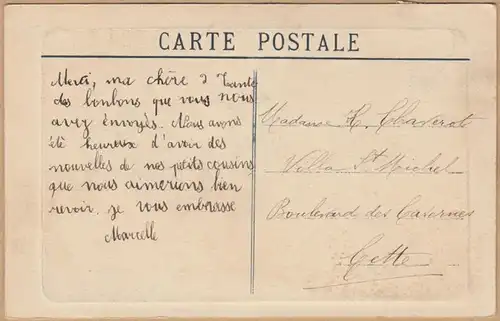 CARTE POSTALE
Merci, ma chère Tante
des bonbons que vous nous
avez énvoyés. Nous avons
été heureux d'avoir des
nouvelles de nos petits cousins
que nous aimerions bien
revoir. je vous embrasse
Marcelle
Madame
Villa St Michel
Boulevard des Casernes
Cette